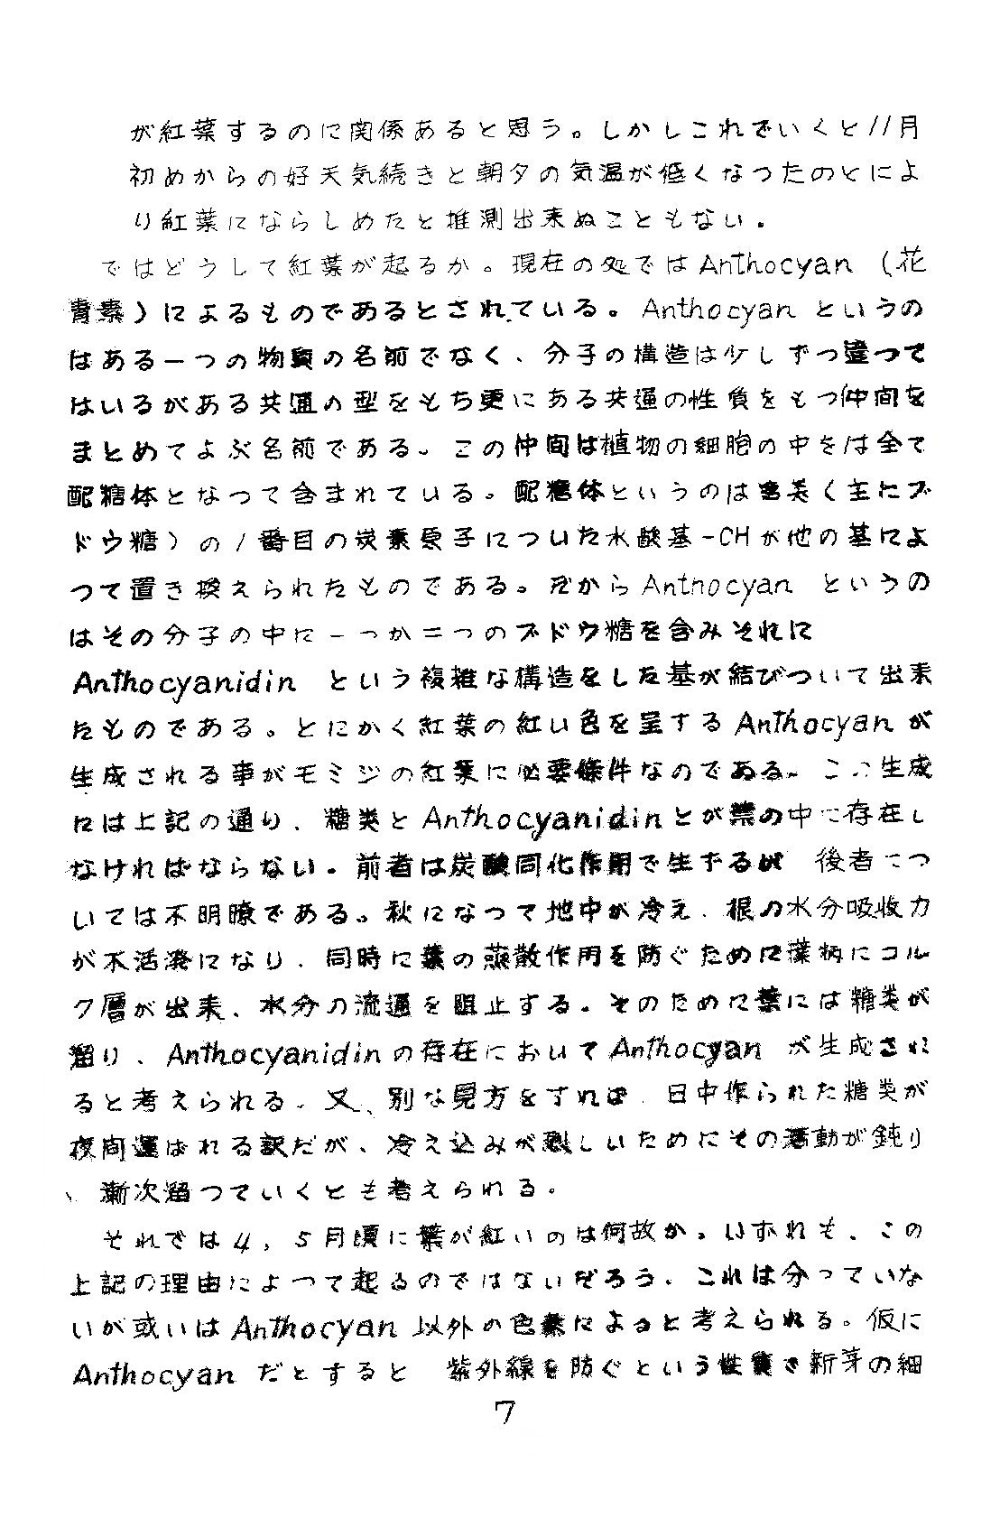 が紅葉するのに関係あると思う。しかしこれでいくと11月
初めからの好天気続きと朝夕の気温が低くなつたのとによ
り紅葉にならしめたと推測出来ぬこともない。
ではどうして紅葉が起るか。現在の処ではAnthocyan（花
青素）によるものであるとされている。Anthocyanというの
はある一つの物質の名前でなく、分子の構造は少しずつ違つて
はいるがある共通の型をもち更にある共通の性質をもつ仲間を
まとめてよぶ名前である。この仲間は植物の細胞の中では全て
配糖体となつて含まれている。配糖体というのは糖类（主にブ
ドウ糖）の1番目の炭素原子についた水酸基-CHが他の基によ
つて置き換えられたものである。だからAnthocyanというの
はその分子の中に一つか二つのブドウ糖を含みそれに
Anthocyanidinという複雑な構造をした基が結びついて出来
たものである。とにかく紅葉の紅い色を呈するAnthocyanが
生成される事がモミジの紅葉に必要條件なのである。この生成
には上記の通り、糖类とAnthocyanidinとが葉の中に存在し
なければならない。前者は炭酸同化作用で生ずるが 後者につ
いては不明瞭である。秋になつて地中が冷え、根の水分吸收力
が不活溌になり、同時に葉の蒸散作用を防ぐために葉柄にコル
ク層が出来、水分の流通を阻止する。そのために葉には糖类が
溜り、Anthocyanidinの存在においてAnthocyanが生成され
ると考えられる。又、別な見方をすれば、日中作られた糖类が
夜間運ばれる訳だが、冷え込みが烈しいためにその活動が鈍り
、漸次溜つていくとも考えられる。
それでは4，5月頃に葉が紅いのは何故か。いずれも、この
上記の理由によつて起るのではないだろう。これは分つていな
いが或いはAnthocyan以外の色素によると考えられる。仮に
Anthocyanだとすると 紫外線を防ぐという性質で新芽の細
7